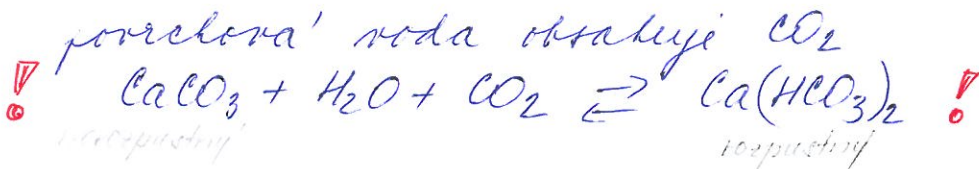 povrchová voda obsahuje CO₂
! CaCO₃ + H₂O + CO₂ ⇄ Ca(HCO₃)₂ !
nerozpustný rozpustný